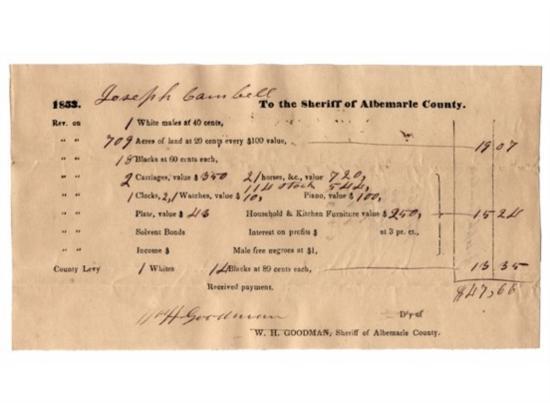 1853. Joseph Cambell To the Sheriff of Albemarle County.
Rev. on 1 White males at 40 cents,
" " 709 Acres of land at 20 cents every $100 value, 19 07
" " 18 Blacks at 60 cents each,
" " 2 Carriages, value $ 350 21 horses, &c., value 720,
114 stock 544,
" " 1 Clocks, 2, 1 Watches, value $ 10, Piano, value $ 100,
" " Plate, value $ 43 Household & Kitchen Furniture value $ 250, 15 24
" " Solvent Bonds Interest on profits $ at 3 pr. ct.,
" " Income $ Male free negroes at $1,
County Levy 1 Whites 14 Blacks at 89 cents each, 13 35
Received payment, $47,66
W H Goodman D'y of
W. H. GOODMAN, Sheriff of Albemarle County.